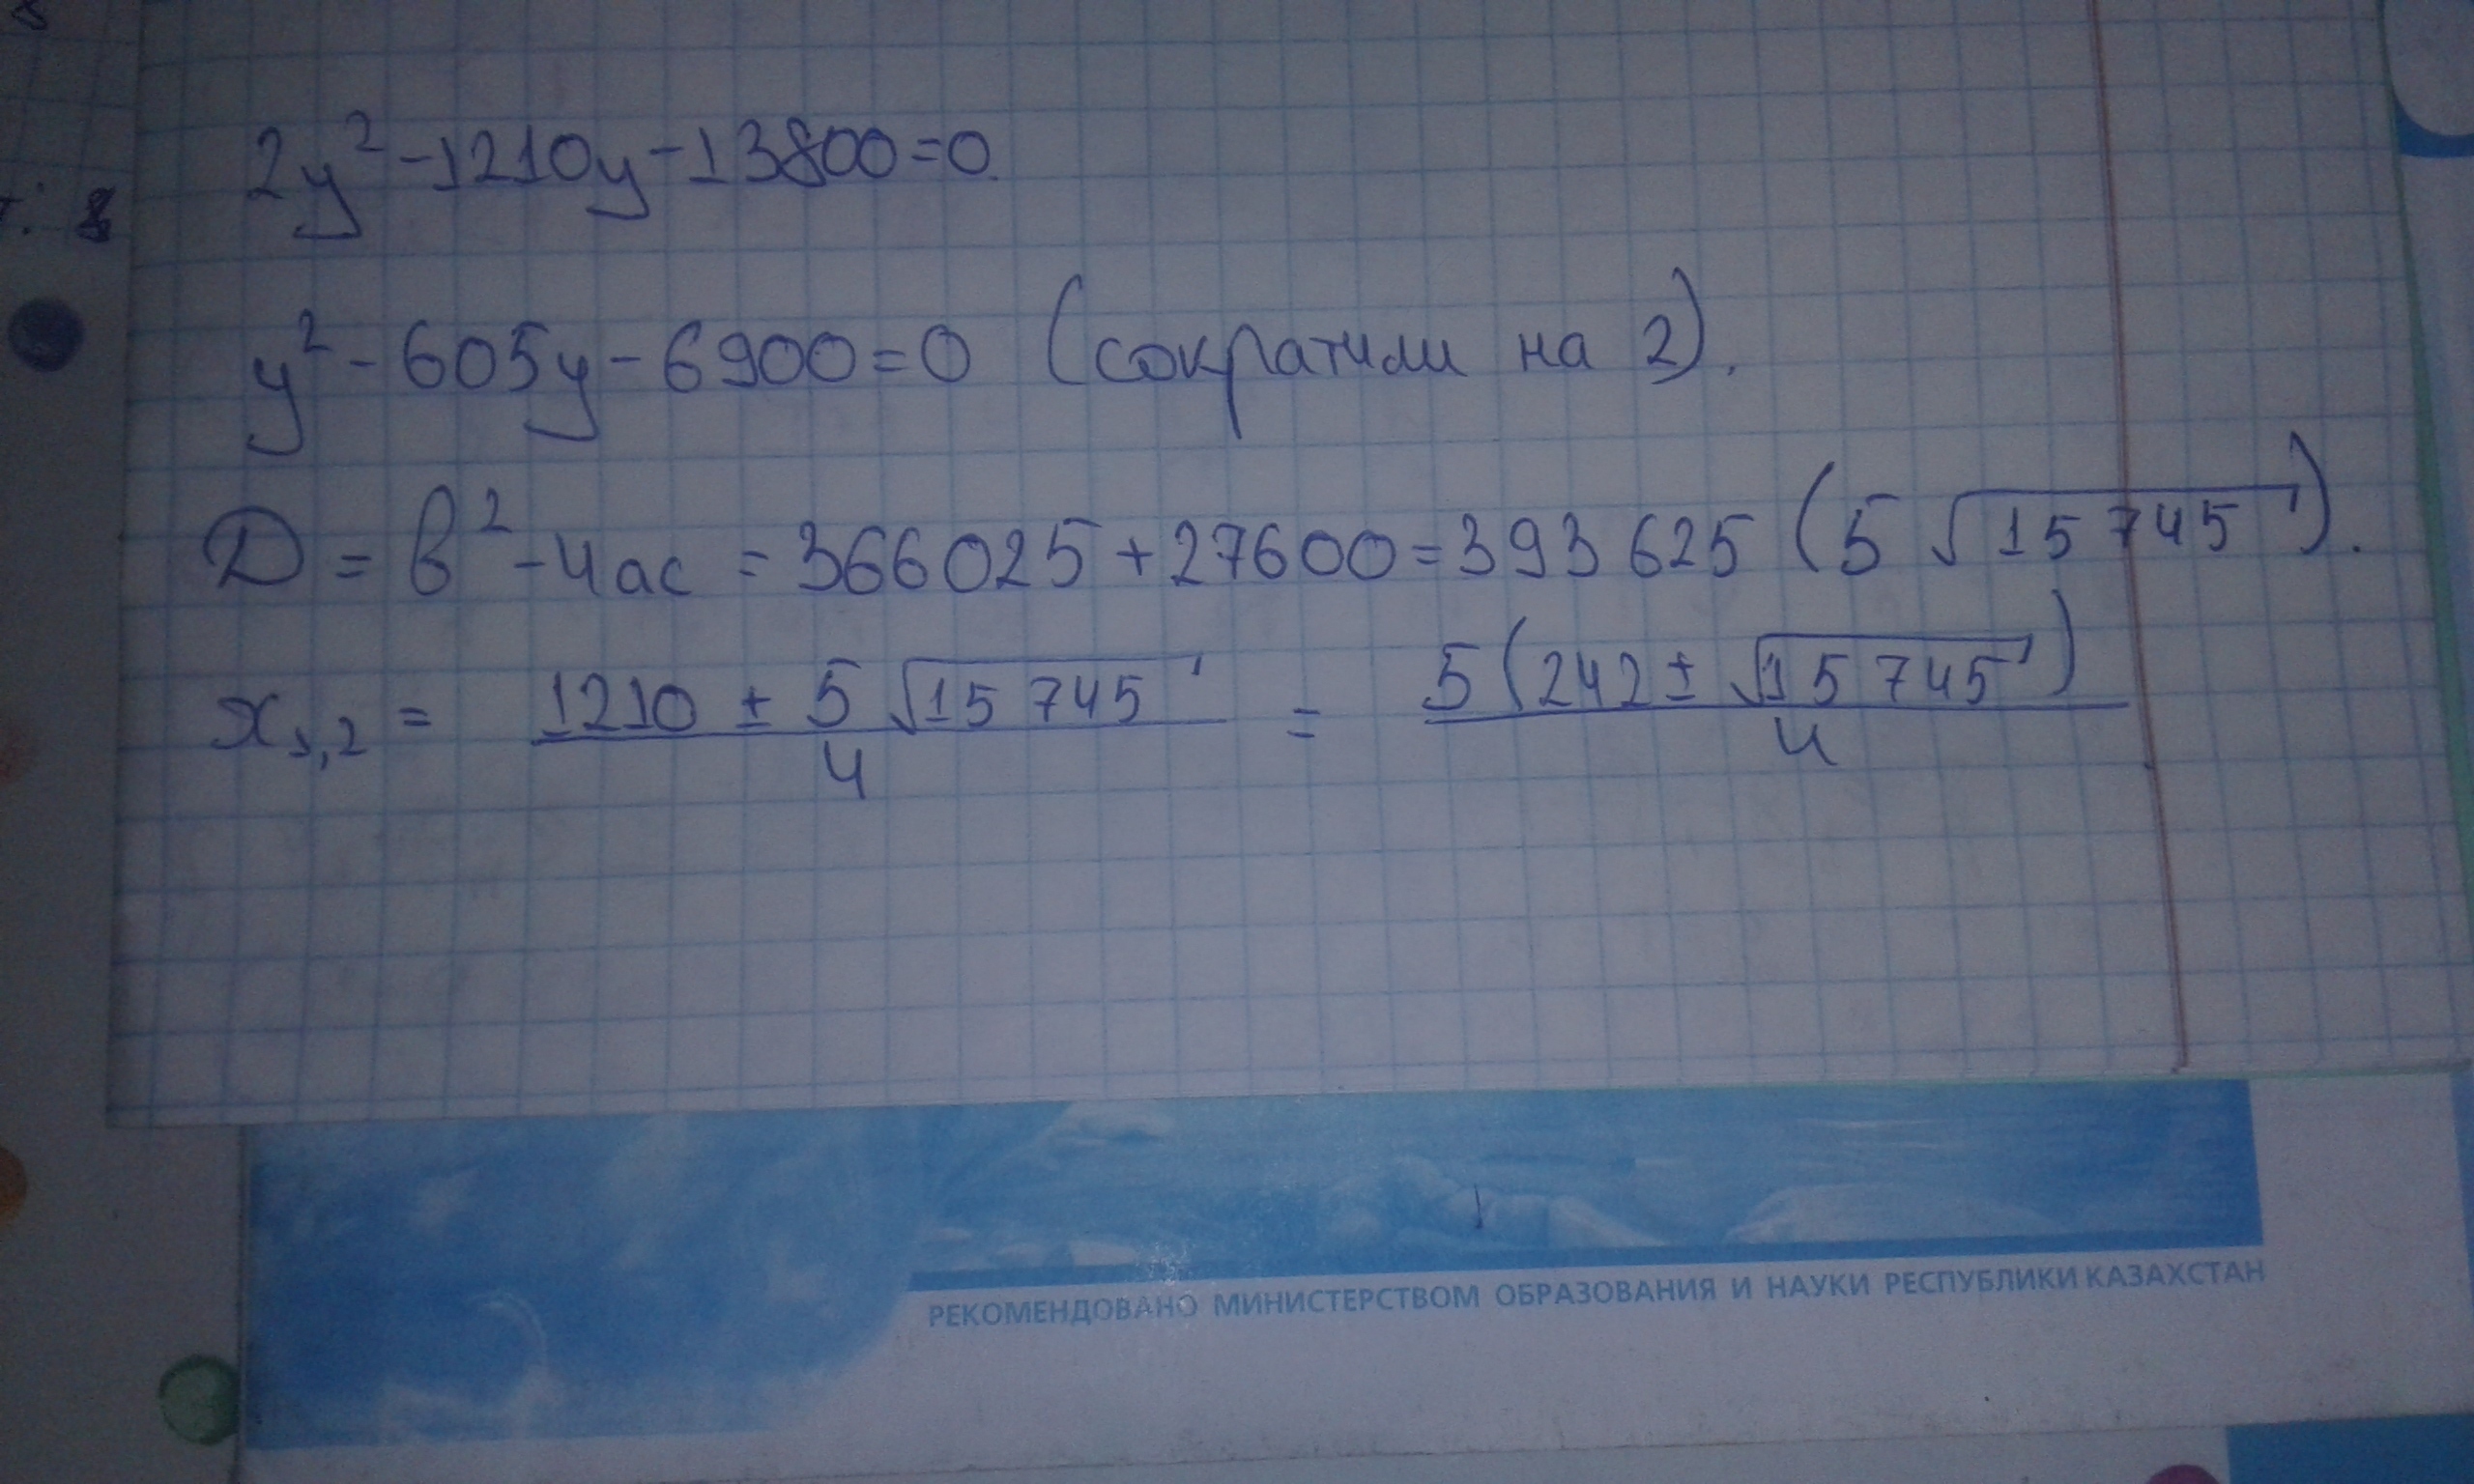 2y² - 1210y - 13800 = 0.
y² - 605y - 6900 = 0 (сократили на 2).
D = b² - 4ac = 366025 + 27600 = 393 625 (5 √15 745).
x₁,₂ = (1210 ± 5 √15 745) / 4 = 5(242 ± √15 745) / 4
РЕКОМЕНДОВАНО МИНИСТЕРСТВОМ ОБРАЗОВАНИЯ И НАУКИ РЕСПУБЛИКИ КАЗАХСТАН